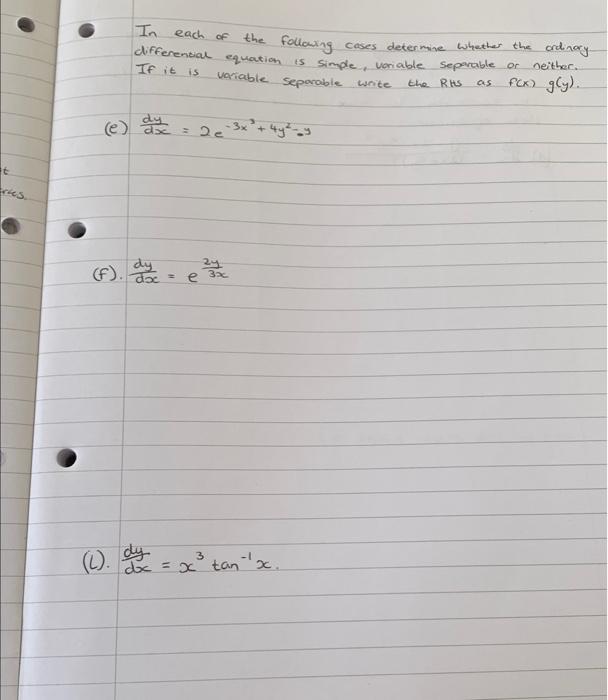 In each of the following cases determine whether the ordinary
differential equation is simple, variable separable or neither.
If it is variable separable write the RHS as f(x) g(y).
(e) dy/dx = 2e^{-3x^3 + 4y^2 - y}
t
(f). dy/dx = e^{2y/3x}
(i). dy/dx = x^3 tan^{-1} x.